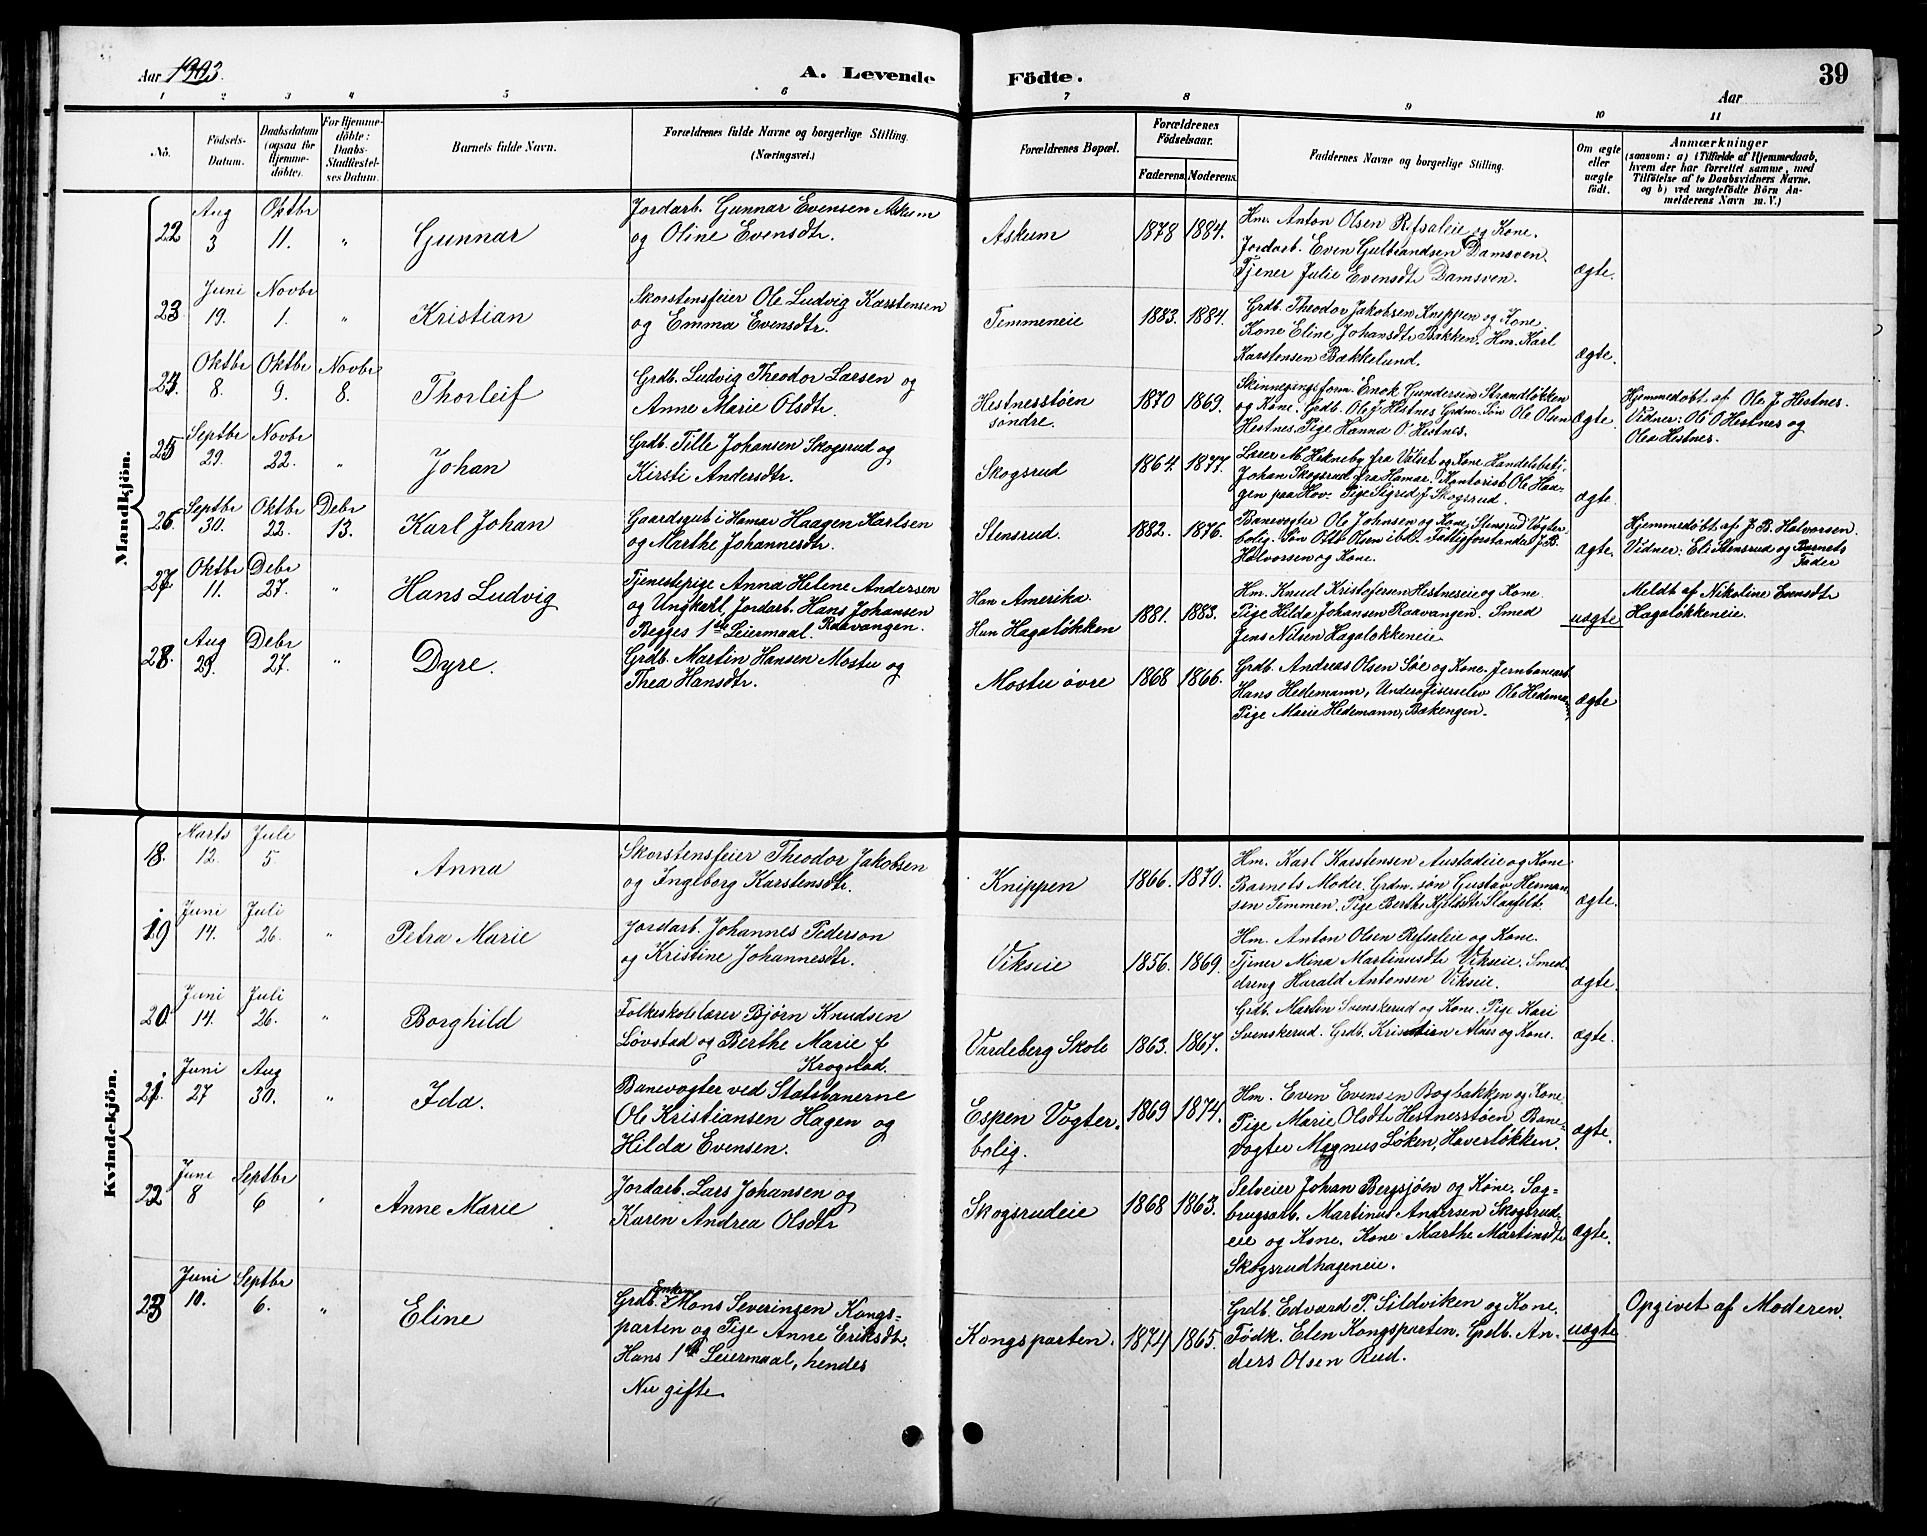 Aar 1903.
A. Levende Födte.
Aar
39
1 2 3 4 5 6 7 8 9 10 11
No.
Födsels-
Datum.
Daabsdatum
(ogsaa för
Hjemme-
döbte).
For Hjemme-
döbte:
Daabs-
Stadfæstel-
ses Datum.
Barnets fulde Navn.
Forældrenes fulde Navne og borgerlige Stilling.
(Næringsvei.)
Forældrenes Bopæl.
Forældrenes
Födselsaar.
Faderens. Moderens.
Faddernes Navne og borgerlige Stilling.
Om ægte
eller
uægte
födt.
Anmærkninger
(saasom: a) i Tilfælde af Hjemmedaab,
hvem der har forrettet samme, med
Tilföielse af to Daabsvidners Navne,
og b) ved uægtefödte Börn An-
melderens Navn m. V.)
Mandkjön.
22
Aug
3
Oktbr
11.
"
Gunnar
Jordarb. Gunnar Evensen Askum
og Oline Evensdtr.
Askum
1878 1884.
Hm. Anton Olsen Refsaleie og Kone.
Jordarb. Even Gulbrandsen Damsven.
Tjener Julie Evensdtr Damsven.
ægte.
23
Juni
19.
Novbr
1.
"
Kristian
Skorstensfeier Ole Ludvig Karstensen
og Emma Evensdtr.
Temmeneie
1883. 1884.
Grdb. Theodor Jakobsen Kneppen og Kone
Kone Eline Johansdtr Bakken. Hm. Karl
Karstensen Bakkelund.
ægte.
24.
Oktbr
8.
Oktbr
9.
Novbr
8.
Thorleif
Grdb. Ludvig Theodor Larsen og
Anne Marie Olsdtr.
Hestnesstøen
søndre.
1870 1869.
Skinnegangsform. Enok Gundersen Strandløkken
og Kone. Grdb. Ole J. Hestnes Grdm. Søn Ole Olsen
Hestnes. Pige Hanna O. Hestnes.
ægte
Hjemmedøbt. af Ole J. Hestnes.
Vidner: Ole O Hestnes og
Olea Hestnes.
25
Septbr
29.
Novbr
22.
"
Johan
Grdb. Tille Johansen Skogsrud og
Kirsti Andersdtr.
Skogsrud
1864. 1877.
Lærer M. Hekneby fra Valset og Kone. Handelsbetj.
Johan Skogsrud fra Hamar. Kontorist Ole Haa-
gen paa Hov. Pige Sigrid J. Skogsrud.
ægte.
26.
Septbr
30.
Oktbr
22.
Debr
13.
Karl Johan
Gaardsgut i Hamar Haagen Karlsen
og Marthe Johannesdtr.
Stensrud.
1882. 1876.
Banevogter Ole Johnsen og Kone, Stensrud Vogter-
bolig. Søn Otto Olsen ibd. Fattigforstander J. B.
Halvorsen og Kone.
ægte
Hjemmedøbt. af J. B. Halvorsen.
Vidner: Eli Stensrud og Barnets
Fader
27
Oktbr
11.
Debr
27.
"
Hans Ludvig
Tjenestepige Anna Helene Andersen
og Ungkarl, Jordarb. Hans Johansen
Begges 1ste Leiermaal. Raavangen.
Han Amerika.
Hun Hagaløkken
1881. 1883.
Hm. Knud Kristofersen Hestneseie og Kone
Pige Hilda Johansen Raavangen. Smed
Jens Nilsen Hagaløkkeneie.
uægte
Meldt af Nikoline Evensdtr
Hagaløkkeneie.
28.
Aug
29.
Debr
27.
"
Dyre.
Grdb. Martin Hansen Mostu og
Thea Hansdtr.
Mostu øvre
1868 1866.
Grdb. Andreas Olsen Søe og Kone. Jernbanearb.
Hans Hedemann, Underofficerselev Ole Hedemann
Pige Marie Hedemann, Bakengen.
ægte
Kvindekjön.
18.
Marts
12.
Juli
5.
Anna
Skorstensfeier Theodor Jakobsen
og Ingeborg Karstensdtr.
Knippen
1866. 1870.
Hm. Karl Karstensen Austadeie og Kone
Barnets Moder. Grdm. søn Gustav Herman-
sen Temmen. Pige Berthe Kjeldstr Slaafeldt.
ægte.
19
Juni
14.
Juli
26.
"
Petra Marie
Jordarb. Johannes Pederson
og Kristine Johannesdtr.
Vikseie
1856. 1869.
Hm. Anton Olsen Refsaleie og Kone.
Tjener Mina Martinusdtr Vikseie. Smed-
dreng Harald Antonsen Vikseie.
ægte.
20.
Juni
14.
Juli
26.
"
Borghild
Folkeskolelærer Bjørn Knudsen
Løvstad og Berthe Marie f.
Krogstad.
Vardeberg Skole
1863. 1867.
Grdb. Martin Svenskerud og Kone. Pige Kari
Svenskerud. Grdb. Kristian Alnes og Kone.
ægte.
21.
Juni
27
Aug
30.
"
Ida.
Banevogter ved Statsbanerne
Ole Kristiansen Hagen og
Hilda Evensen.
Espen Vogter-
bolig.
1869 1874.
Hm. Even Evensen Bogbakken og Kone.
Pige Marie Olsdtr Hestnesstøen. Bane-
vogter Magnus Løken, Haverløkken.
ægte.
22
Juni
8
Septbr
6
"
Anne Marie
Jordarb. Lars Johansen og
Karen Andrea Olsdtr
Skogsrudeie
1868 1863.
Selveier Johan Bergsjøen og Kone. Sag-
brugsarb. Martinus Andersen Skogsrud-
eie og Kone. Kone Marthe Martinsdtr
Skogsrudhageneie.
ægte.
23
Juni
10.
Septbr
6.
"
Eline
Enkem.
Grdb. Mons Severinsen Kongs-
parten og Pige Anne Eriksdtr.
Hans 1ste Leiermaal, hendes
Nu gifte.
Kongsparten.
1874 1865.
Grdb. Edvard P. Sildviken og Kone.
Fødk. Elen Kongsparten. Grdb. An-
ders Olsen Rud.
uægte
Opgivet af Moderen.